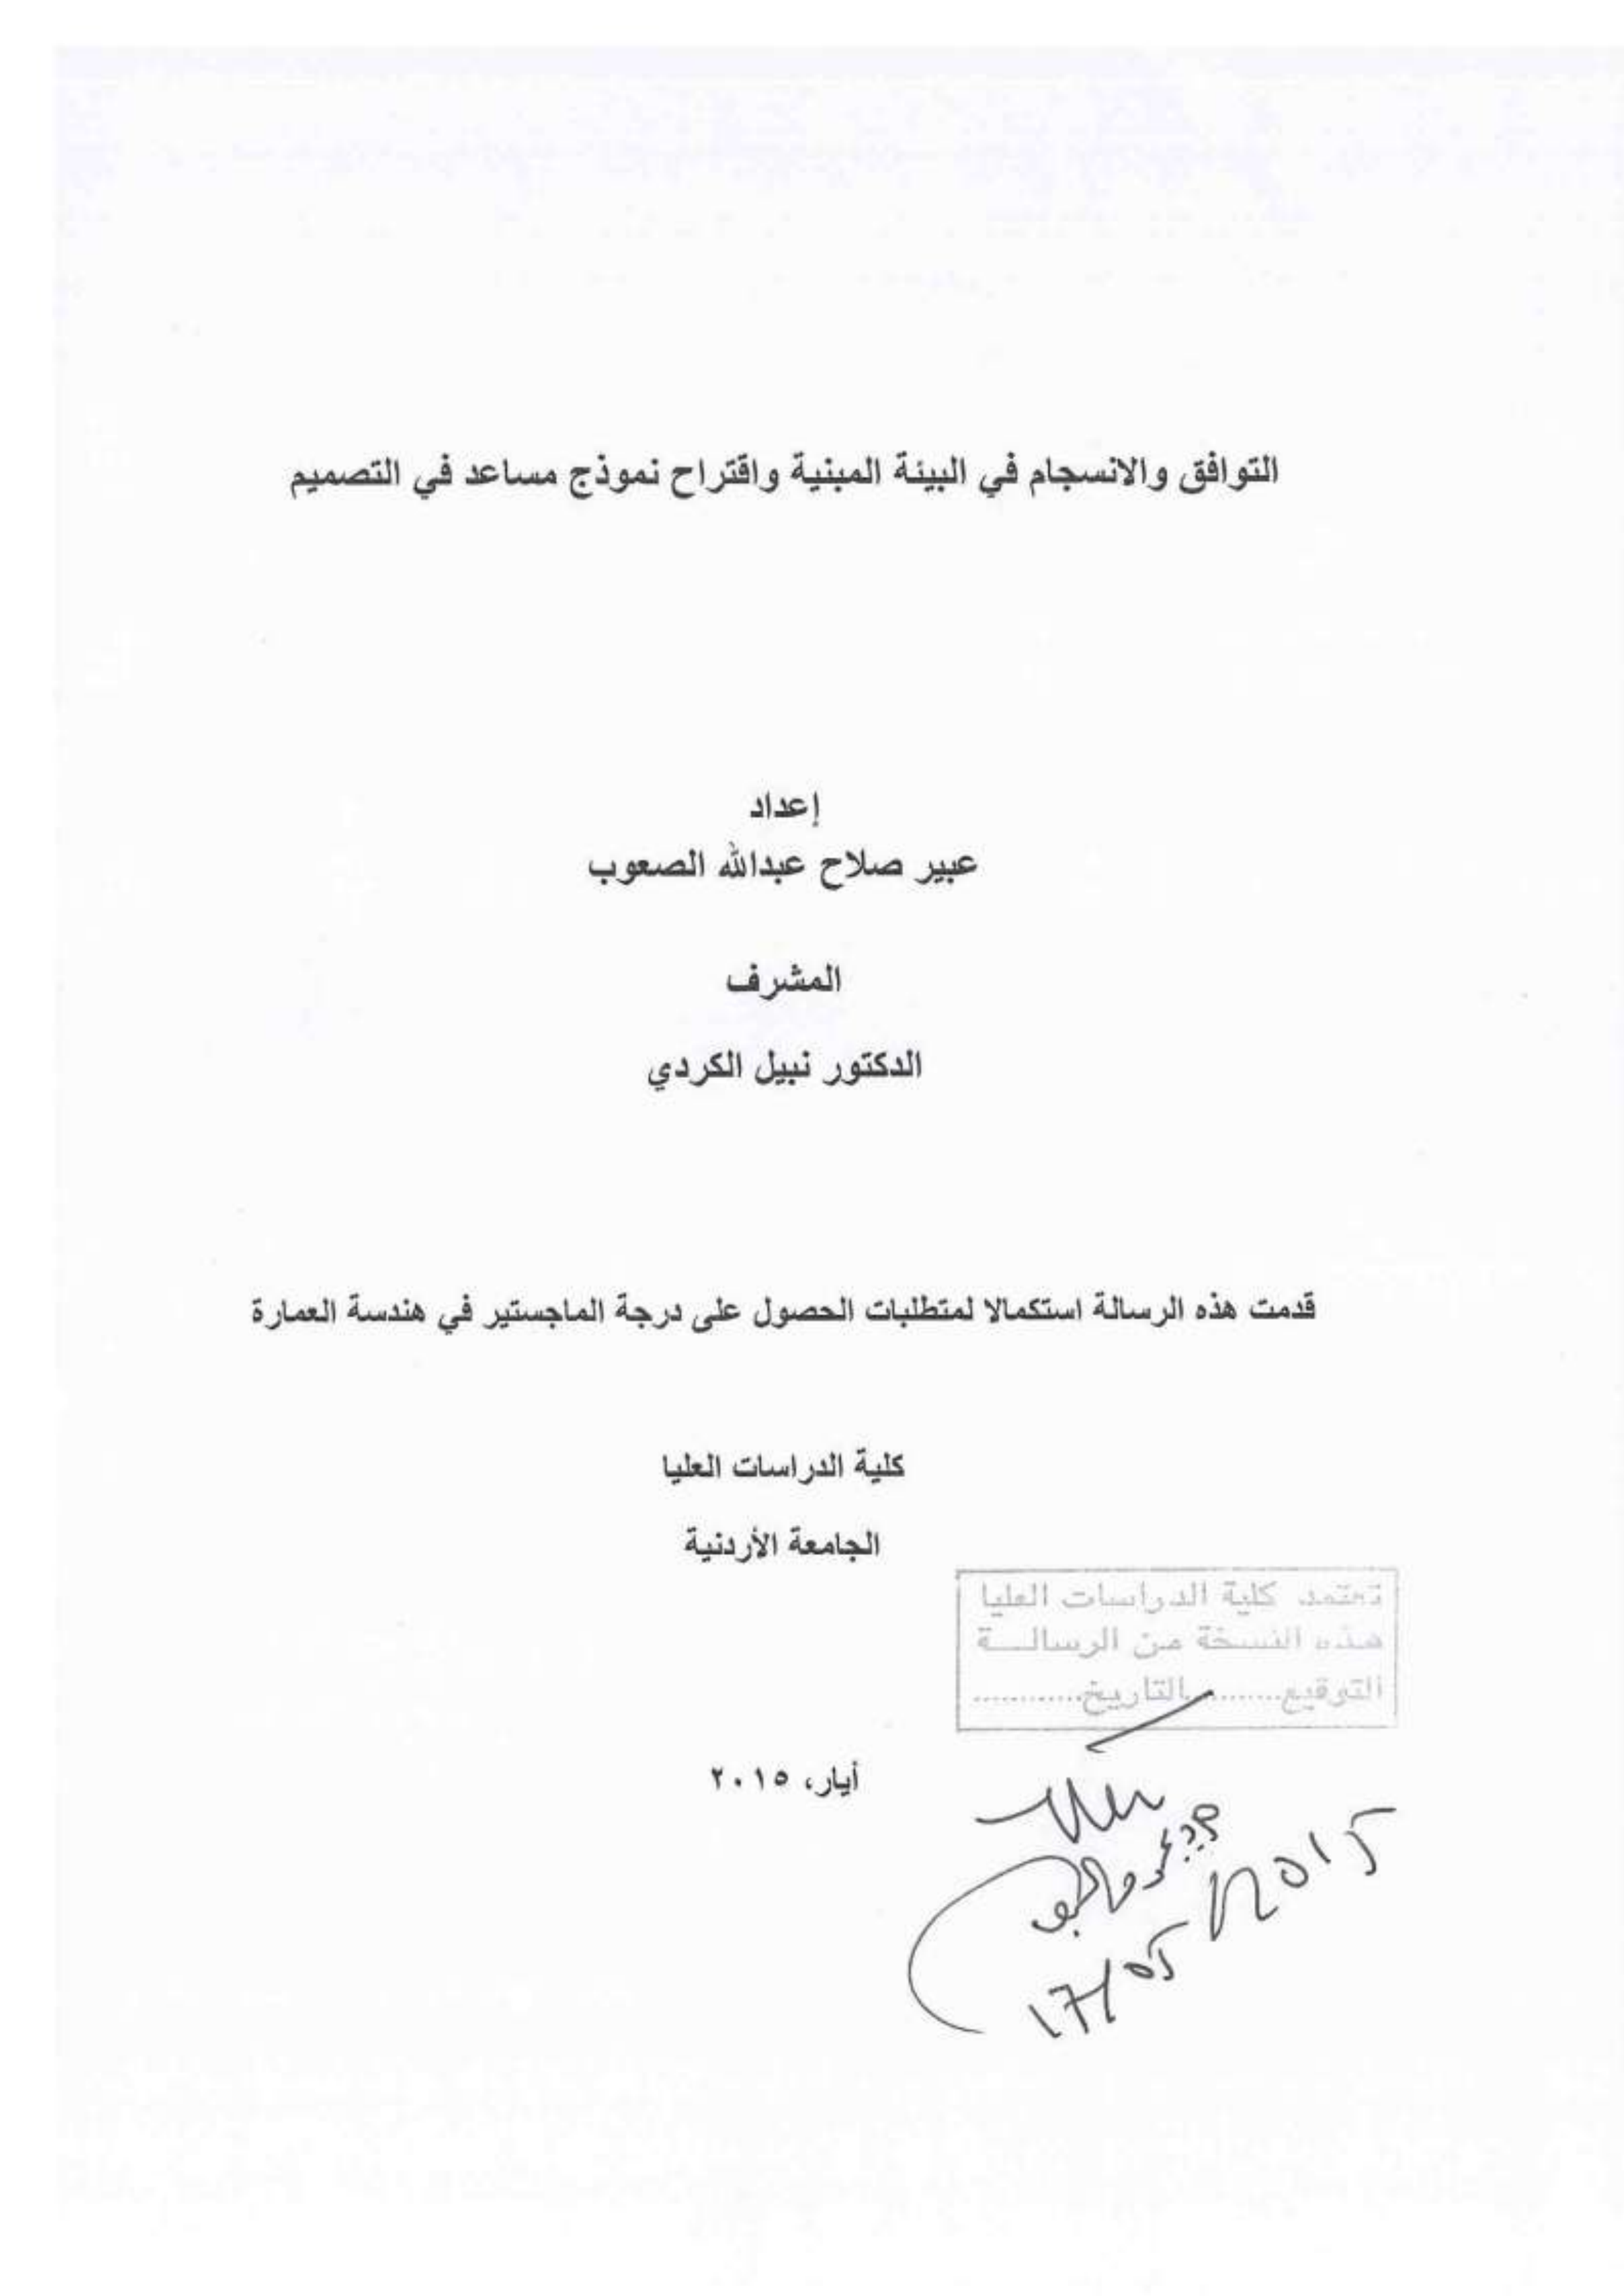 التوافق والانسجام في البيئة المبنية واقتراح نموذج مساعد في التصميم
إعداد
عبير صلاح عبدالله الصعوب
المشرف
الدكتور نبيل الكردي
قدمت هذه الرسالة استكمالا لمتطلبات الحصول على درجة الماجستير في هندسة العمارة
كلية الدراسات العليا
الجامعة الأردنية
تعتمد كلية الدراسات العليا
هذه النسخة من الرسالــة
التوقيع.........التاريخ............
أيار، ٢٠١٥
17/05/2015